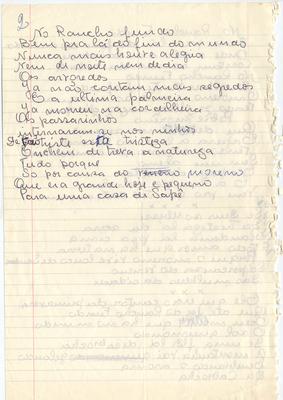 2
No Rancho fundo
Bem pra lá do fim do mundo
Nunca mais houve alegria
Nem de noite nem de dia
Os arvoredos
Já não contam mais segredos
E a ultima palmeira
Já morreu na cordilheira
Os passarinhos
internaram-se nos ninhos
De tão triste esta tristeza
Enchem de treva a natureza
Tudo porque
Só por causa do moreno
Que era grande hoje é pequeno
Para uma casa de sapé